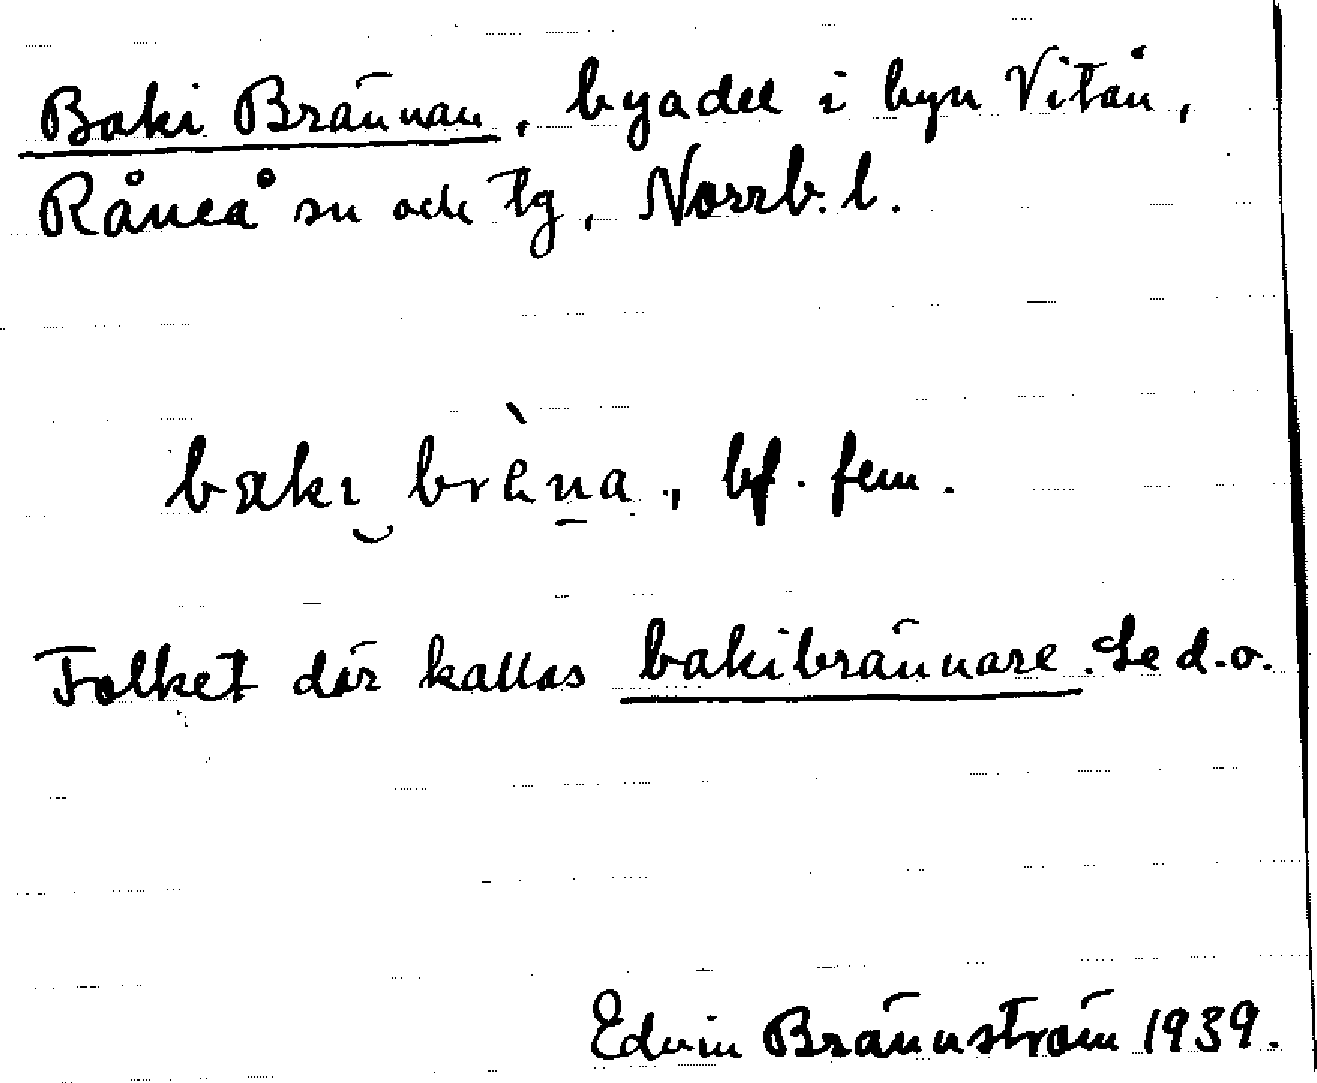 Baki Brännan, byadel i byn Vitån,
Råneå sn och tg, Norrb. l.
bakı brὲna, bf. fem.
Folket där kallas bakibrännare. Se d.o.
Edvin Brännström 1939.